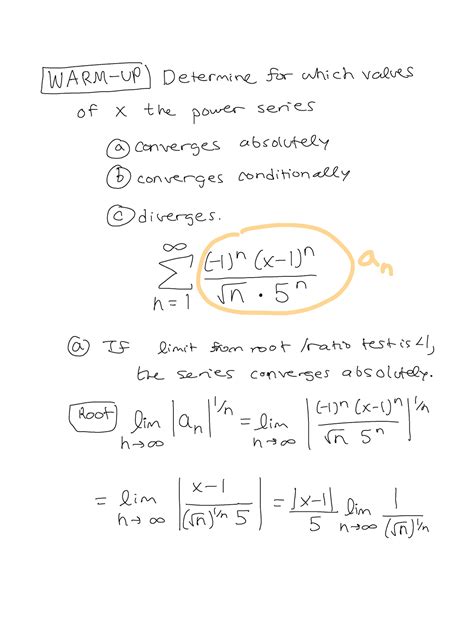 WARM-UP Determine for which values
of x the power series
(a) converges absolutely
(b) converges conditionally
(c) diverges.
∞ ∑ n=1 (-1)^n (x-1)^n / √n · 5^n a_n
(a) If limit from root/ratio test is <1,
the series converges absolutely.
Root lim n→∞ |a_n|^{1/n} = lim n→∞ |(-1)^n (x-1)^n / √n 5^n|^{1/n}
= lim n→∞ |x-1 / (√n)^{1/n} 5| = |x-1| / 5 lim n→∞ 1 / (√n)^{1/n}